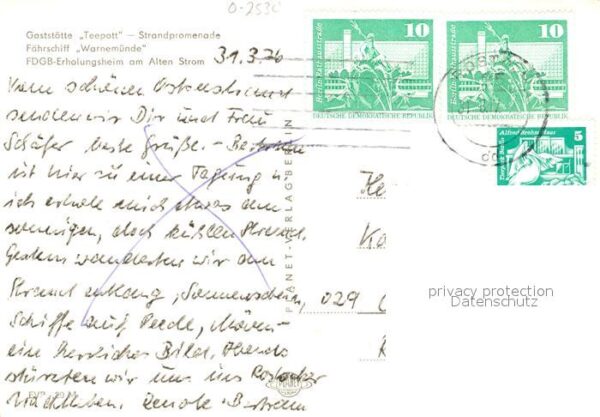 0-2530
Gaststätte „Teepott" — Strandpromenade
Fährschiff „Warnemünde"
FDGB-Erholungsheim am Alten Strom
31.3.76
Vom schönen Ostseestrand
senden wir Dir und Frau
Schäfer beste Grüße. -
ist hier zu einer Tagung u.
ich erhole mich etwas am
sonnigen, doch kühlen Strand.
Gestern wanderten wir am
Strand entlang, Sonnenschein,
Schiffe auf Reede, Möwen -
ein herrliches Bild. Abends
stürzten wir uns ins Rostocker
Nachtleben.
PLANET-VERLAG BERLIN
Berlin Rathausstraße
10
DEUTSCHE DEMOKRATISCHE REPUBLIK
Berlin Rathausstraße
10
DEUTSCHE DEMOKRATISCHE REPUBLIK
ROST
Alfred Brehm Haus
5
Tierpark Berlin
DDR
He
Ka
029
privacy protection
Datenschutz